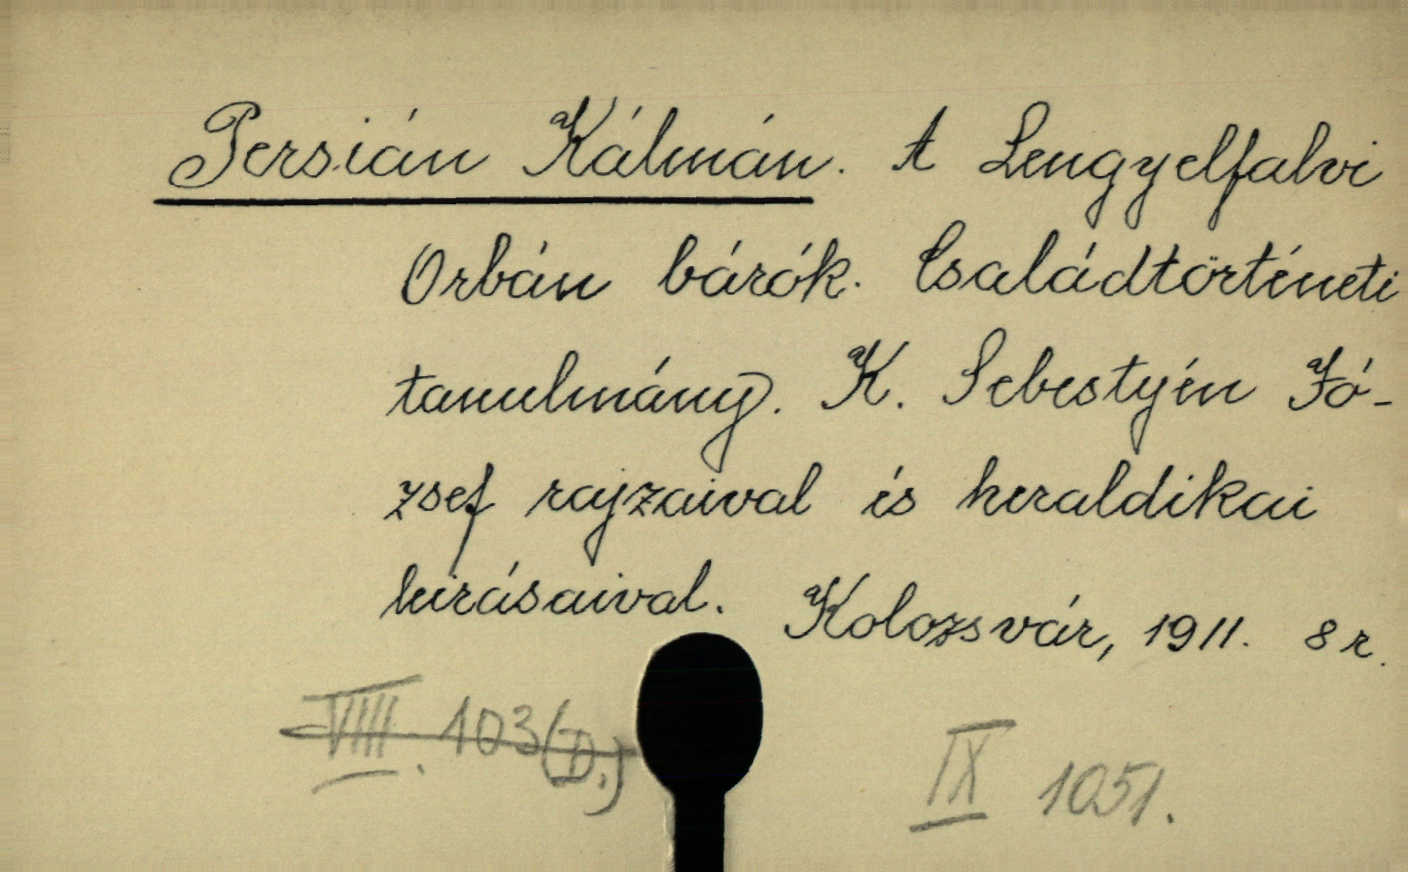 Persián Kálmán. A Lengyelfalvi
Orbán bárók. Családtörténeti
tanulmány. K. Sebestyén Jó-
zsef rajzaival és heraldikai
leirásaival. Kolozsvár, 1911. 8 r.
VIII. 103 (D.)
IX 1051.